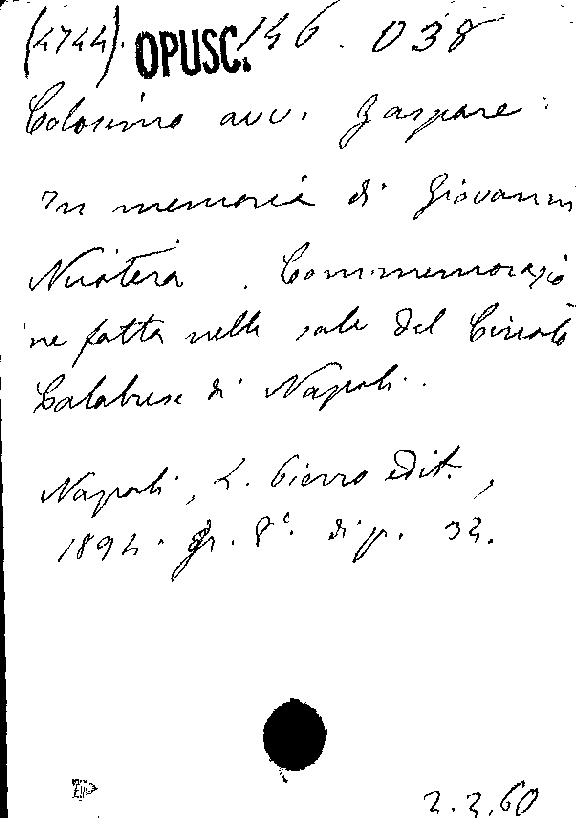 (4744). OPUSC. 146. 038
Colosimo avv. Gaspare.
In memoria di Giovanni
Nicotera. Commemorazio
ne fatta nelle sale del Circolo
Calabrese di Napoli.
Napoli, L. Pierro edit.,
1894. gr. 8°. di p. 32.
2.2.60